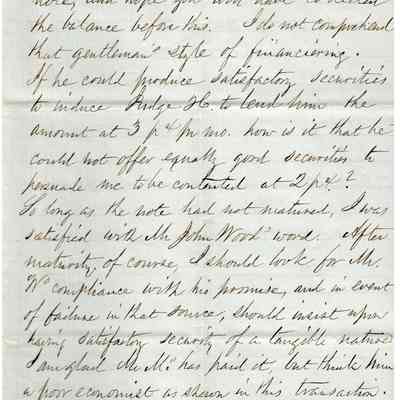 here, and hope you will have received
the balance before this. I do not comprehend
that gentleman's style of financiering.
If he could produce satisfactory securities
to induce Judge H. to lend him the
amount at 3 p ct p. mo. how is it that he
could not offer equally good securities to
persuade me to be contented at 2 p ct.?
So long as the note had not matured, I was
satisfied with Mr John Wood's word. After
maturity, of course, I should look for Mr.
W's compliance with his promise, and in event
of failure in that source, should insist upon
having satisfactory security of a tangible nature
I am glad Mr M. has paid it, but think him
a poor economist as shewn in this transaction.